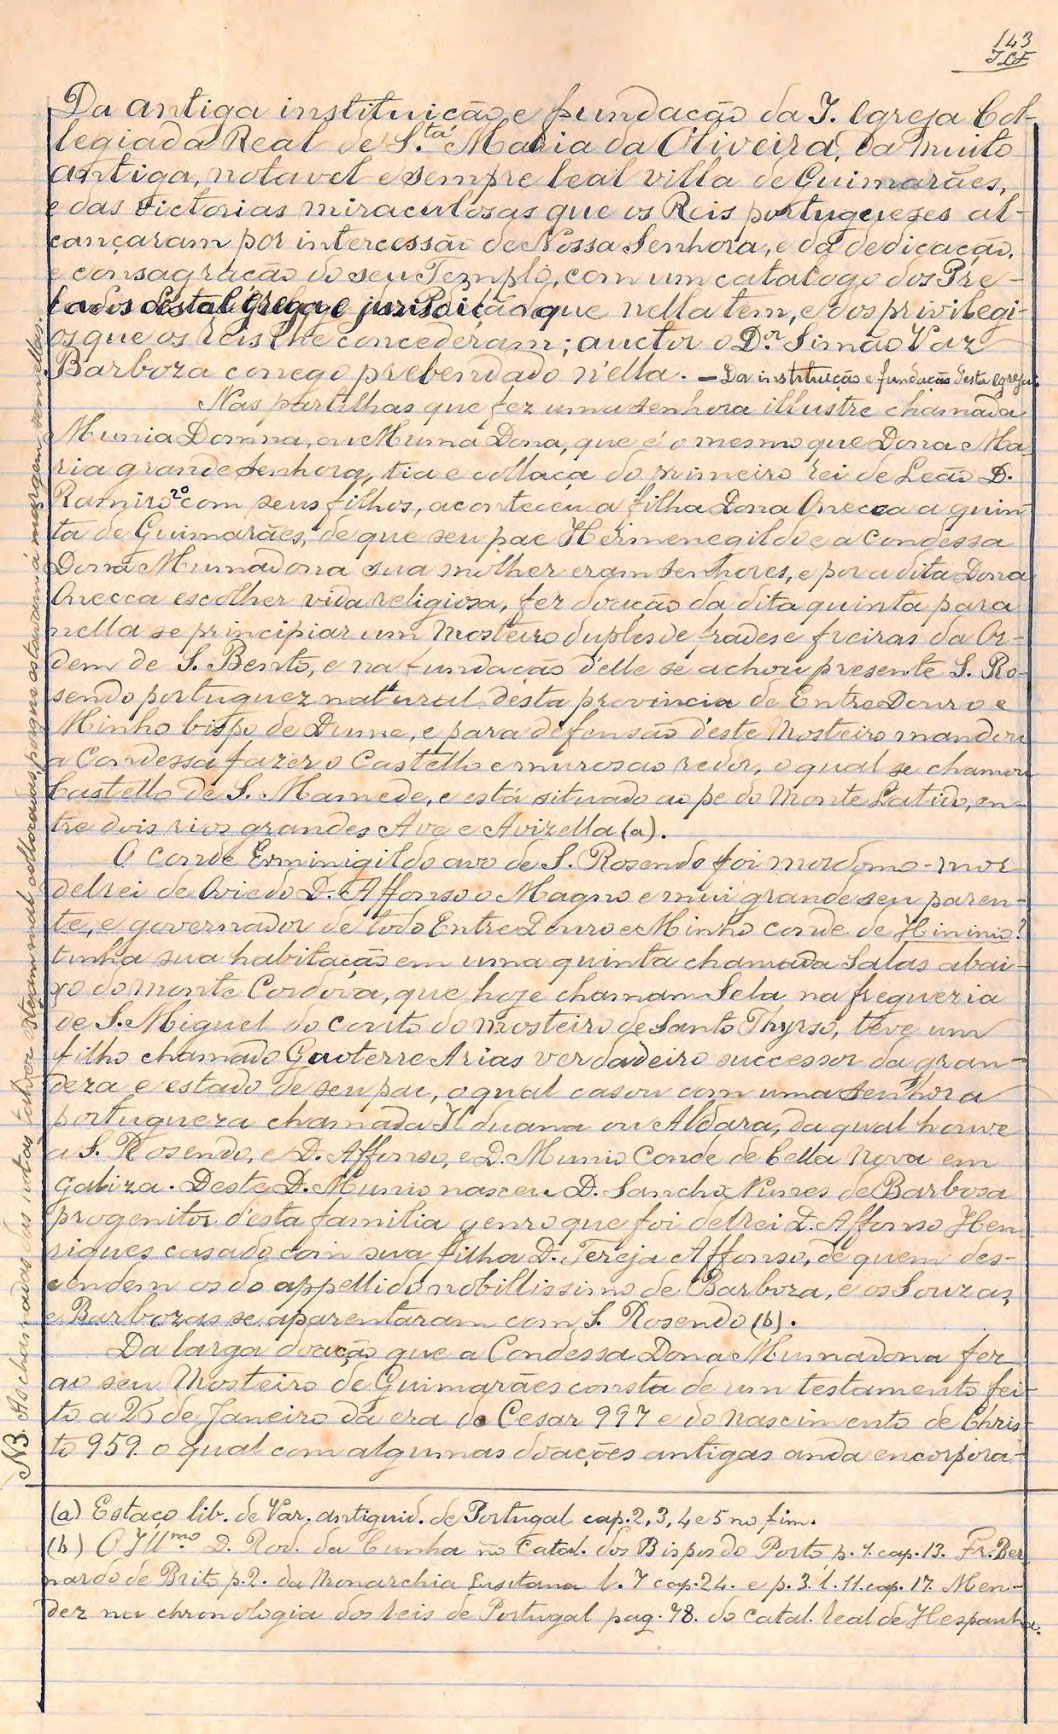 143
JLF
Da antiga instituição e fundação da I. Igreja Col-
legiada Real de S.ta Maria da Oliveira, da muito
antiga, notavel e sempre leal villa de Guimarães,
e das victorias miraculosas que os Reis portugueses al-
cançaram por intercessão de Nossa Senhora, e da dedicação,
e consagração do seu Templo, com um catalogo dos Pre-
lados desta Igreja e jurisdicção que nella tem, e dos privilegi-
os que os Reis lhe concederam; auctor o D.r Simão Vaz
Barboza conego prebendado n'ella. — Da instituição e fundação desta egreja.
Nas partilhas que fez uma senhora illustre chamada
Munia Domna, ou Muma Dona, que é o mesmo que Dona Ma
ria grande senhora, tia e collaça do primeiro rei de Leão D.
Ramiro 2º com seus filhos, aconteceu a filha Dona Onecca a quin
ta de Guimarães, de que seu pae Hermenegildo e a Condessa
Dona Mumadona sua mulher eram senhores, e por a dita Dona
Onecca escolher vida religiosa, fez doação da dita quinta para
nella se principiar um Mosteiro duples de frades e freiras da Or-
dem de S. Bento, e na fundação d'elle se achou presente S. Ro-
sendo portuguez natural desta provincia de Entre Douro e
Minho bispo de Dume, e para defensão d'este Mosteiro mandou
a Condessa fazer o Castello e muros ao redor, o qual se chamou
Castello de S. Mamede, e está situado ao pe do Monte Latido, en-
tre dois rios grandes Ave e Avizella (a).
O conde Erminigildo avo de S. Rosendo foi mordomo-mor
delrei de Oviedo D. Affonso o Magno e mui grande seu paren-
te, e governador de todo Entre Douro e Minho conde de Hininio?
tinha sua habitação em uma quinta chamada Salas abai-
xo do monte Cordova, que hoje chamam Sela na freguezia
de S. Miguel do couto do mosteiro de Santo Thyrso, teve um
filho chamado Gooterre Arias verdadeiro successor da gran-
deza e estado de seu pae, o qual casou com uma senhora
portugueza chamada Ilduana ou Aldara, da qual houve
a S. Rosendo, e D. Affonso, e D. Munio Conde de Cella Nova em
Galiza. Deste D. Munio nasceu D. Sancho Nunes de Barbosa
progenitor d'esta familia genro que foi delrei D. Affonso Hen
riques casado com sua filha D. Tereja Affonso, de quem des-
cendem os do appellido nobillissimo de Barboza, e os Souzas,
e Barbozas se aparentaram com S. Rosendo (b).
Da larga doação que a Condessa Dona Mumadona fez
ao seu Mosteiro de Guimarães consta de um testamento fei-
to a 26 de Janeiro da era de Cesar 997 e do nascimento de Chris
to 959. o qual com algumas doações antigas anda encorpora-
(a) Estaço lib. de Var. antiguid. de Portugal cap. 2, 3, 4 e 5 no fim.
(b) O Ill.mo D. Rod. da Cunha no Catal. dos Bispos do Porto p. 1. cap. 13. Fr. Ber
nardo de Brito p. 2. da Monarchia Lusitana l. 7 cap. 24. e p. 3. l. 11. cap. 17. Men-
dez na chronologia dos reis de Portugal pag. 78. do catal. real de Hespanha.
NB. As chamadas das notas talvez estejam mal collocadas, porque estavam á margem sem ellas.